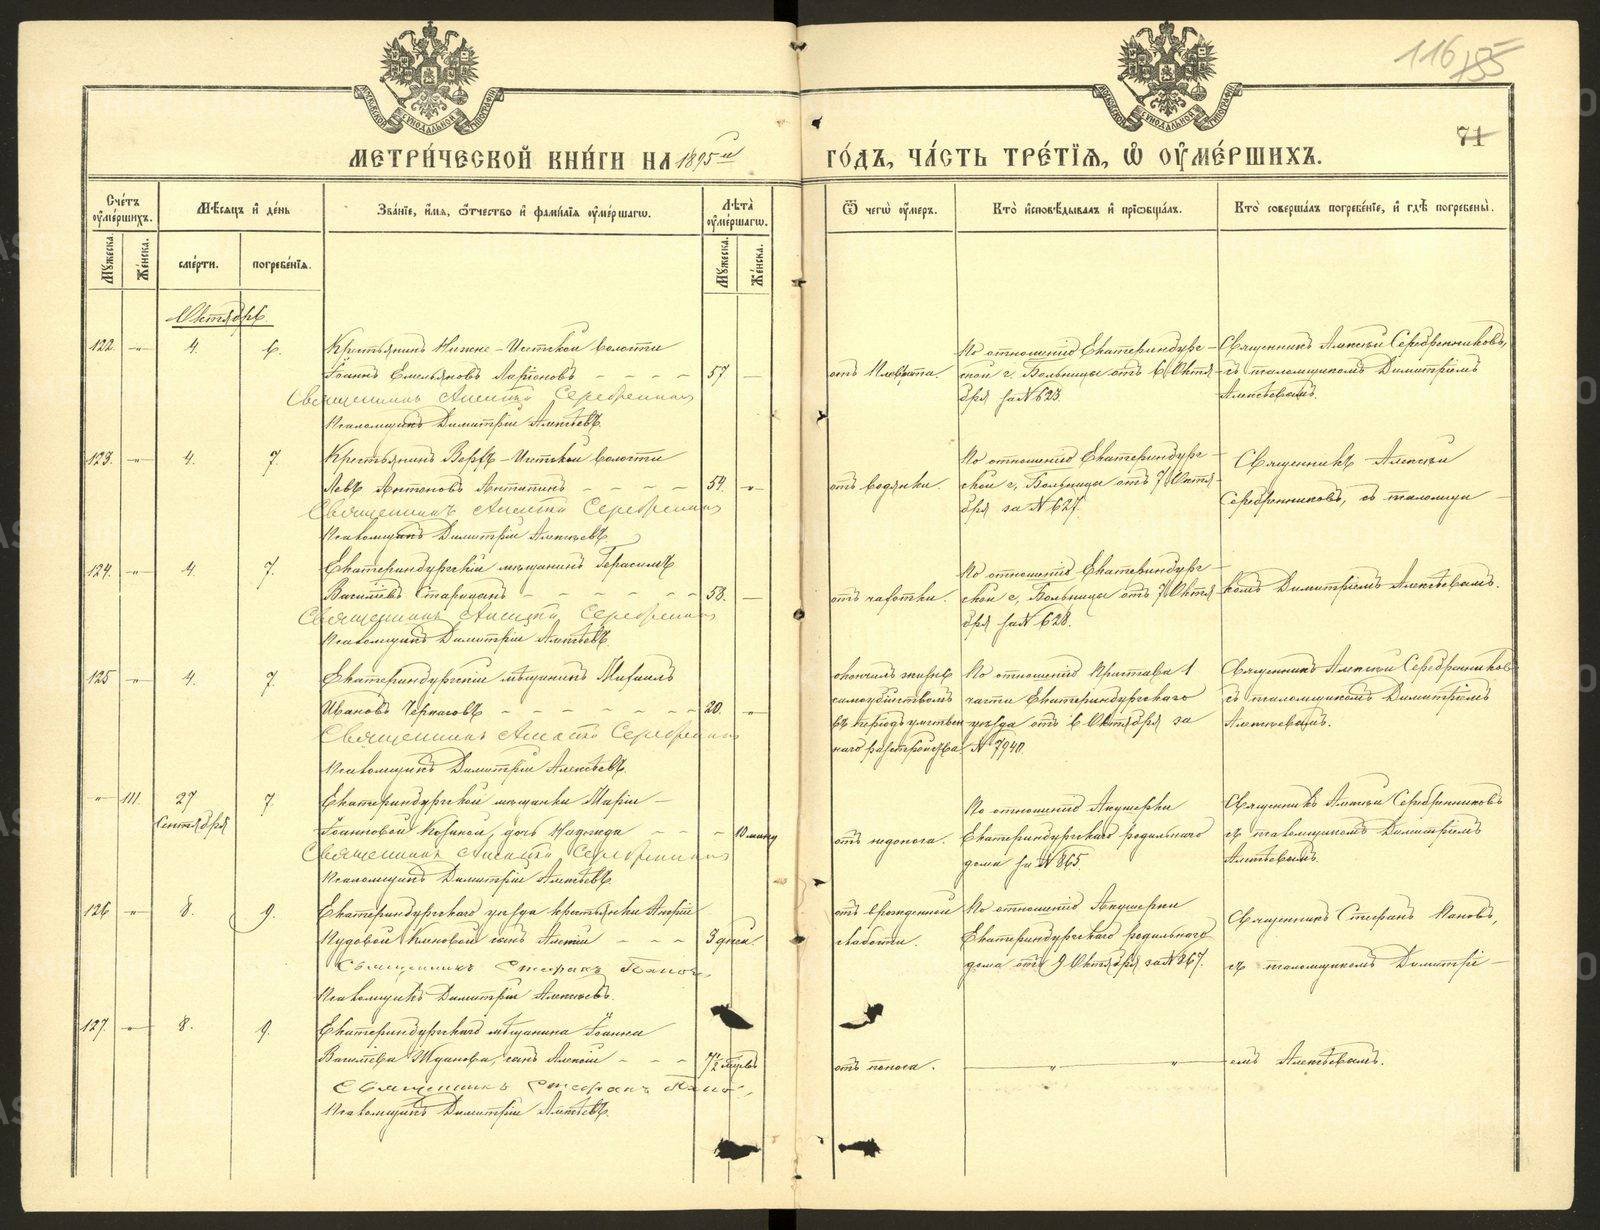 116
135
71
МОСКОВСКОЙ СѴНОДАЛЬНОЙ ТИПОГРАФІИ
МОСКОВСКОЙ СѴНОДАЛЬНОЙ ТИПОГРАФІИ
МЕТРИ́ЧЕСКОЙ КНИ́ГИ НА 1895й ГО́ДЪ, ЧА́СТЬ ТРЕ́ТІѦ, Ѡ҆ ОУ҆МЕ́РШИХЪ.
Сче́тъ оу҆ме́ршихъ.
Мѣ́сѧцъ и҆ де́нь
Зва́нїе, и҆́мѧ, ѻ҆́тчество и҆ фами́лїѧ оу҆ме́ршагѡ.
Лѣ́та оу҆ме́ршагѡ.
Ѿ чегѡ̀ оу҆́меръ.
Кто̀ и҆сповѣ́дывалъ и҆ прїѡбща́лъ.
Кто̀ соверша́лъ погребе́нїе, и҆ гдѣ̀ погребены̀.
Мꙋ́жеска.
Же́нска.
сме́рти.
погребе́нїѧ.
Мꙋ́жеска.
Же́нска.
Октябрь
122. -"- 4. 6. Крестьянинъ Нижне-Исетской волости
Іоаннъ Емельяновъ Ларіоновъ 57 —
Священникъ Алексій Серебренниковъ
Псаломщикъ Димитрій Алексѣевъ.
отъ Плеврита.
По отношенію Екатеринбург-
ской г. Больницы отъ 6 Октя-
бря за № 623.
Священникъ Алексѣй Серебренниковъ,
съ псаломщикомъ Димитріемъ
Алексѣевымъ.
123. -"- 4. 7. Крестьянинъ Верхъ-Исетской волости
Левъ Антоновъ Антипинъ 54. -"-
Священникъ Алексій Серебренниковъ
Псаломщикъ Димитрій Алексѣевъ.
отъ водянки.
По отношенію Екатеринбург-
ской г. Больницы отъ 7 Октя-
бря за № 627.
Священникъ Алексѣй
Серебренниковъ, съ псаломщи-
124. -"- 4. 7. Екатеринбургскій мѣщанинъ Герасимъ
Василіевъ 58. —
Священникъ Алексій Серебренниковъ
Псаломщикъ Димитрій Алексѣевъ.
отъ чахотки.
По отношенію Екатеринбург-
ской г. Больницы отъ 7 Октя-
бря за № 628.
комъ Димитріемъ Алексѣевымъ.
125 -"- 4. 7. Екатеринбургскій мѣщанинъ Михаилъ
Ивановъ Черкасовъ 20. -"-
Священникъ Алексій Серебренниковъ
Псаломщикъ Димитрій Алексѣевъ.
окончилъ жизнь
самоубійствомъ
въ періодъ умствен
наго разстройства
По отношенію Пристава 1
части Екатеринбургскаго
уѣзда отъ 6 Октября за
№ 7940.
Священникъ Алексѣй Серебренниковъ
съ псаломщикомъ Димитріемъ
Алексѣевымъ.
-"- 111. 27 Сентября 7. Екатеринбургской мѣщанки Маріи
Іоанновой дочь Надежда 10 мину
Священникъ Алексій Серебренниковъ
Псаломщикъ Димитрій Алексѣевъ.
отъ недоноса.
По отношенію Акушерки
Екатеринбургскаго родильнаго
дома за № 865.
Священникъ Алексѣй Серебренниковъ
съ псаломщикомъ Димитріемъ
Алексѣевымъ.
126 -"- 8. 9. Екатеринбургскаго уѣзда крестьянки
сынъ Алексій 3 дней.
Священникъ Стефанъ Поповъ,
Псаломщикъ Димитрій Алексѣевъ.
отъ врожденной
слабости.
По отношенію Акушерки
Екатеринбургскаго родильнаго
дома отъ 9 Октября за № 867.
Священникъ Стефанъ Поповъ,
съ псаломщикомъ Димитрі-
127. -"- 8. 9. Екатеринбургскаго мѣщанина Іоанна
Василіева Жданова, сынъ Алексій 7½ мѣсяцъ
Священникъ Стефанъ Поповъ,
Псаломщикъ Димитрій Алексѣевъ.
отъ поноса.
— " — " —
емъ Алексѣевымъ.